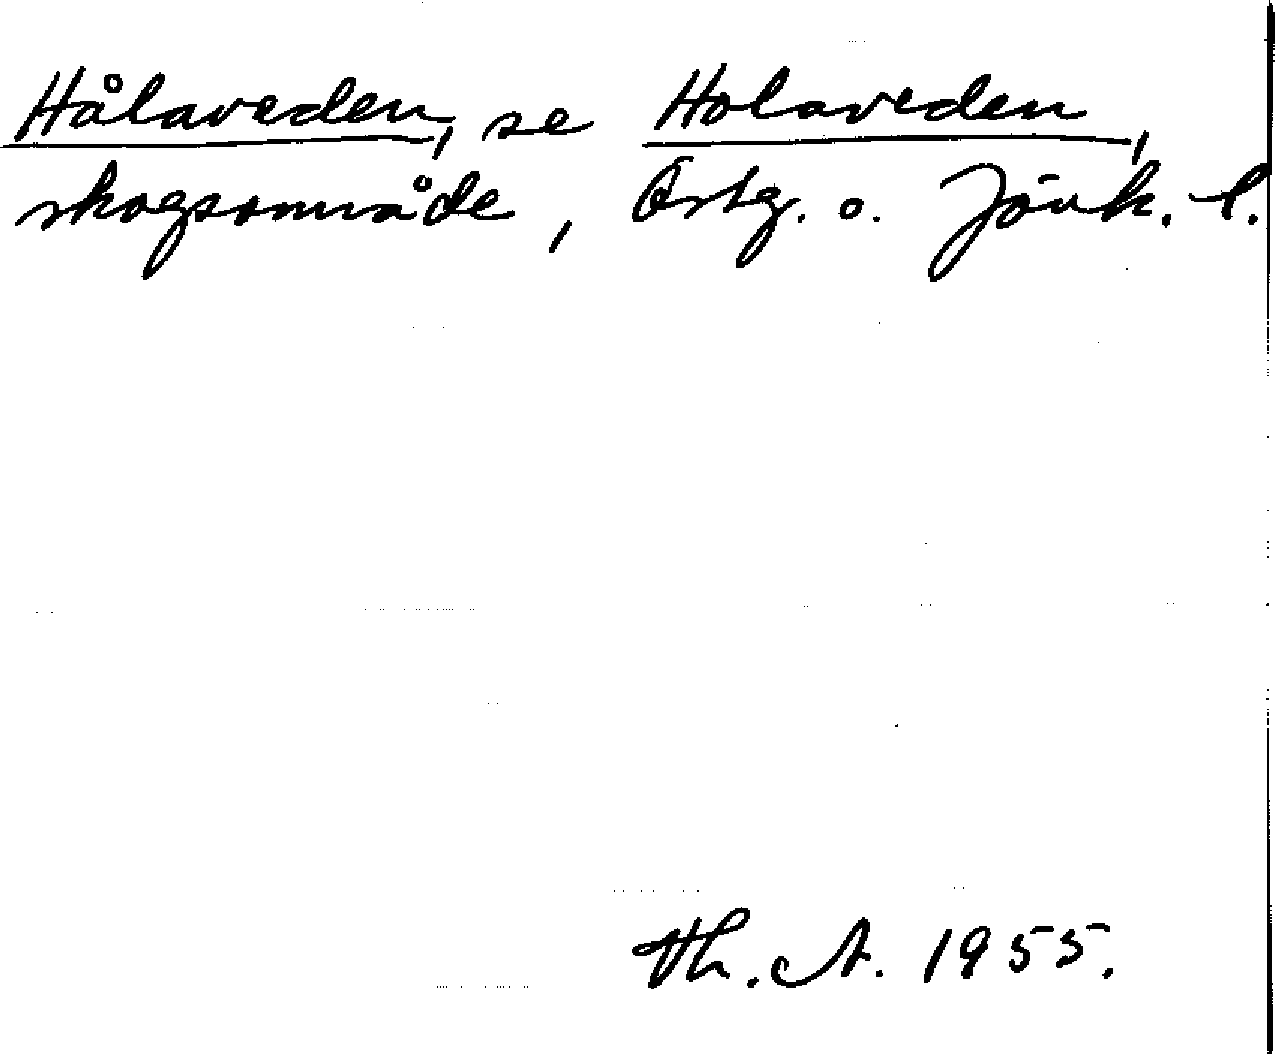 Hålaveden, se Holaveden,
skogsområde, Östg. o. Jönk. l.
Th. A. 1955.